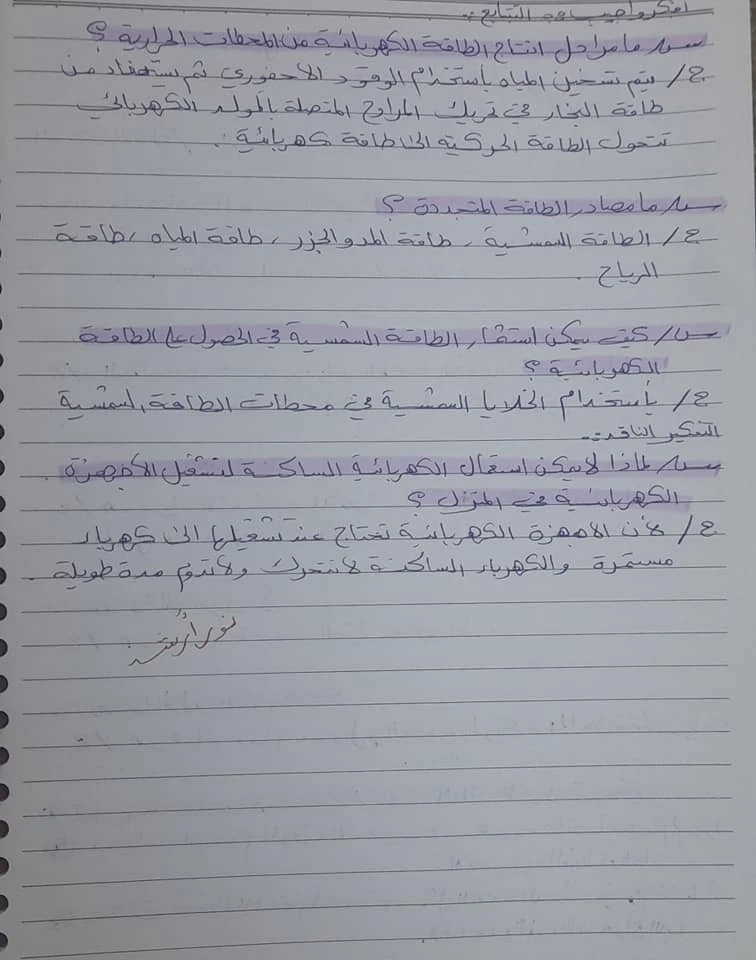 أفكر وأجيب التتابع :-
س/ ما مراحل انتاج الطاقة الكهربائية من المحطات الحرارية ؟
ج/ يتم تسخين المياه بأستخدام الوقود الأحفوري ثم يستفاد من
طاقة البخار في تحريك المراوح المتصلة بالمولد الكهربائي
تتحول الطاقة الحركية الى طاقة كهربائية .
س/ ما مصادر الطاقة المتجددة ؟
ج/ الطاقة الشمسية ، طاقة المد والجزر ، طاقة المياه ، طاقة
الرياح .
س/ كيف يمكن استثمار الطاقة الشمسية في الحصول على الطاقة
الكهربائية ؟
ج/ بأستخدام الخلايا الشمسية في محطات الطاقة الشمسية
التفكير الناقد :-
س/ لماذا لا يمكن استعمال الكهربائية الساكنة لتشغيل الأجهزة
الكهربائية في المنزل ؟
ج/ لأن الأجهزة الكهربائية تحتاج عند تشغيلها الى كهرباء
مستمرة والكهرباء الساكنة لا تتحرك ولا تدوم مدة طويلة .
نور